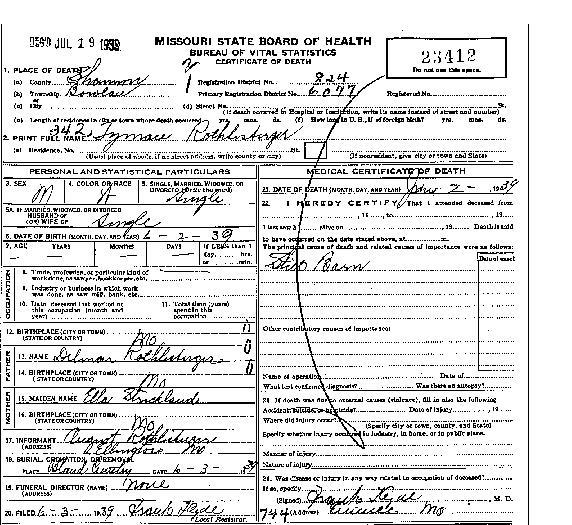 REC'D JUL 19 1939
MISSOURI STATE BOARD OF HEALTH
BUREAU OF VITAL STATISTICS
CERTIFICATE OF DEATH
23412
Do not use this space.
1. PLACE OF DEATH
(a) County Shannon
Registration District No. 224
(b) Township
Primary Registration District No. 6077
Registered No.
(c) City
(d) Street No. St.
(If death occurred in Hospital or Institution, write its name instead of street and number)
(e) Length of residence in city or town where death occurred yrs. mos. ds. (f) How long in U.S., if of foreign birth? yrs. mos. ds.
2. PRINT FULL NAME 342 Rothlisberger
(a) Residence, No. St.
(Usual place of abode, if no street address, write county or city)
(If nonresident, give city or town and State)
PERSONAL AND STATISTICAL PARTICULARS
3. SEX M
4. COLOR OR RACE W
5. SINGLE, MARRIED, WIDOWED, OR DIVORCED (write the word) Single
5A. IF MARRIED, WIDOWED, OR DIVORCED
HUSBAND OF
(OR) WIFE OF Single
6. DATE OF BIRTH (MONTH, DAY, AND YEAR) 6-2-39
7. AGE YEARS MONTHS DAYS If LESS than 1 day, hrs. or min.
OCCUPATION
8. Trade, profession, or particular kind of work done, as sawyer, bookkeeper, etc.
9. Industry or business in which work was done, as saw mill, bank, etc.
10. Date deceased last worked at this occupation (month and year)
11. Total time (years) spent in this occupation
12. BIRTHPLACE (CITY OR TOWN)
(STATE OR COUNTRY) Mo
FATHER
13. NAME Delmar Rothlisberger
14. BIRTHPLACE (CITY OR TOWN)
(STATE OR COUNTRY) Mo
MOTHER
15. MAIDEN NAME Ella
16. BIRTHPLACE (CITY OR TOWN)
(STATE OR COUNTRY) Mo
17. INFORMANT August
(ADDRESS) Mo
18. BURIAL, CREMATION, OR REMOVAL
PLACE DATE 6-3-39
19. FUNERAL DIRECTOR (NAME) None
(ADDRESS)
20. FILED 6-3-1939 Frank Hyde
Local Registrar.
MEDICAL CERTIFICATE OF DEATH
21. DATE OF DEATH (MONTH, DAY, AND YEAR) 2-1939
22. I HEREBY CERTIFY, That I attended deceased from
, 19 , to , 19
I last saw h alive on , 19 Death is said
to have occurred on the date stated above, at m.
The principal cause of death and related causes of importance were as follows:
Date of onset
Still Born
Other contributory causes of importance:
Name of operation Date of
What test confirmed diagnosis? Was there an autopsy?
23. If death was due to external causes (violence), fill in also the following
Accident, suicide, or homicide? Date of injury , 19
Where did injury occur?
(Specify city or town, county, and State)
Specify whether injury occurred in industry, in home, or in public place.
Manner of injury
Nature of injury
24. Was disease or injury in any way related to occupation of deceased?
If so, specify
(Signed) Frank Hyde, M. D.
744 (Address) Mo